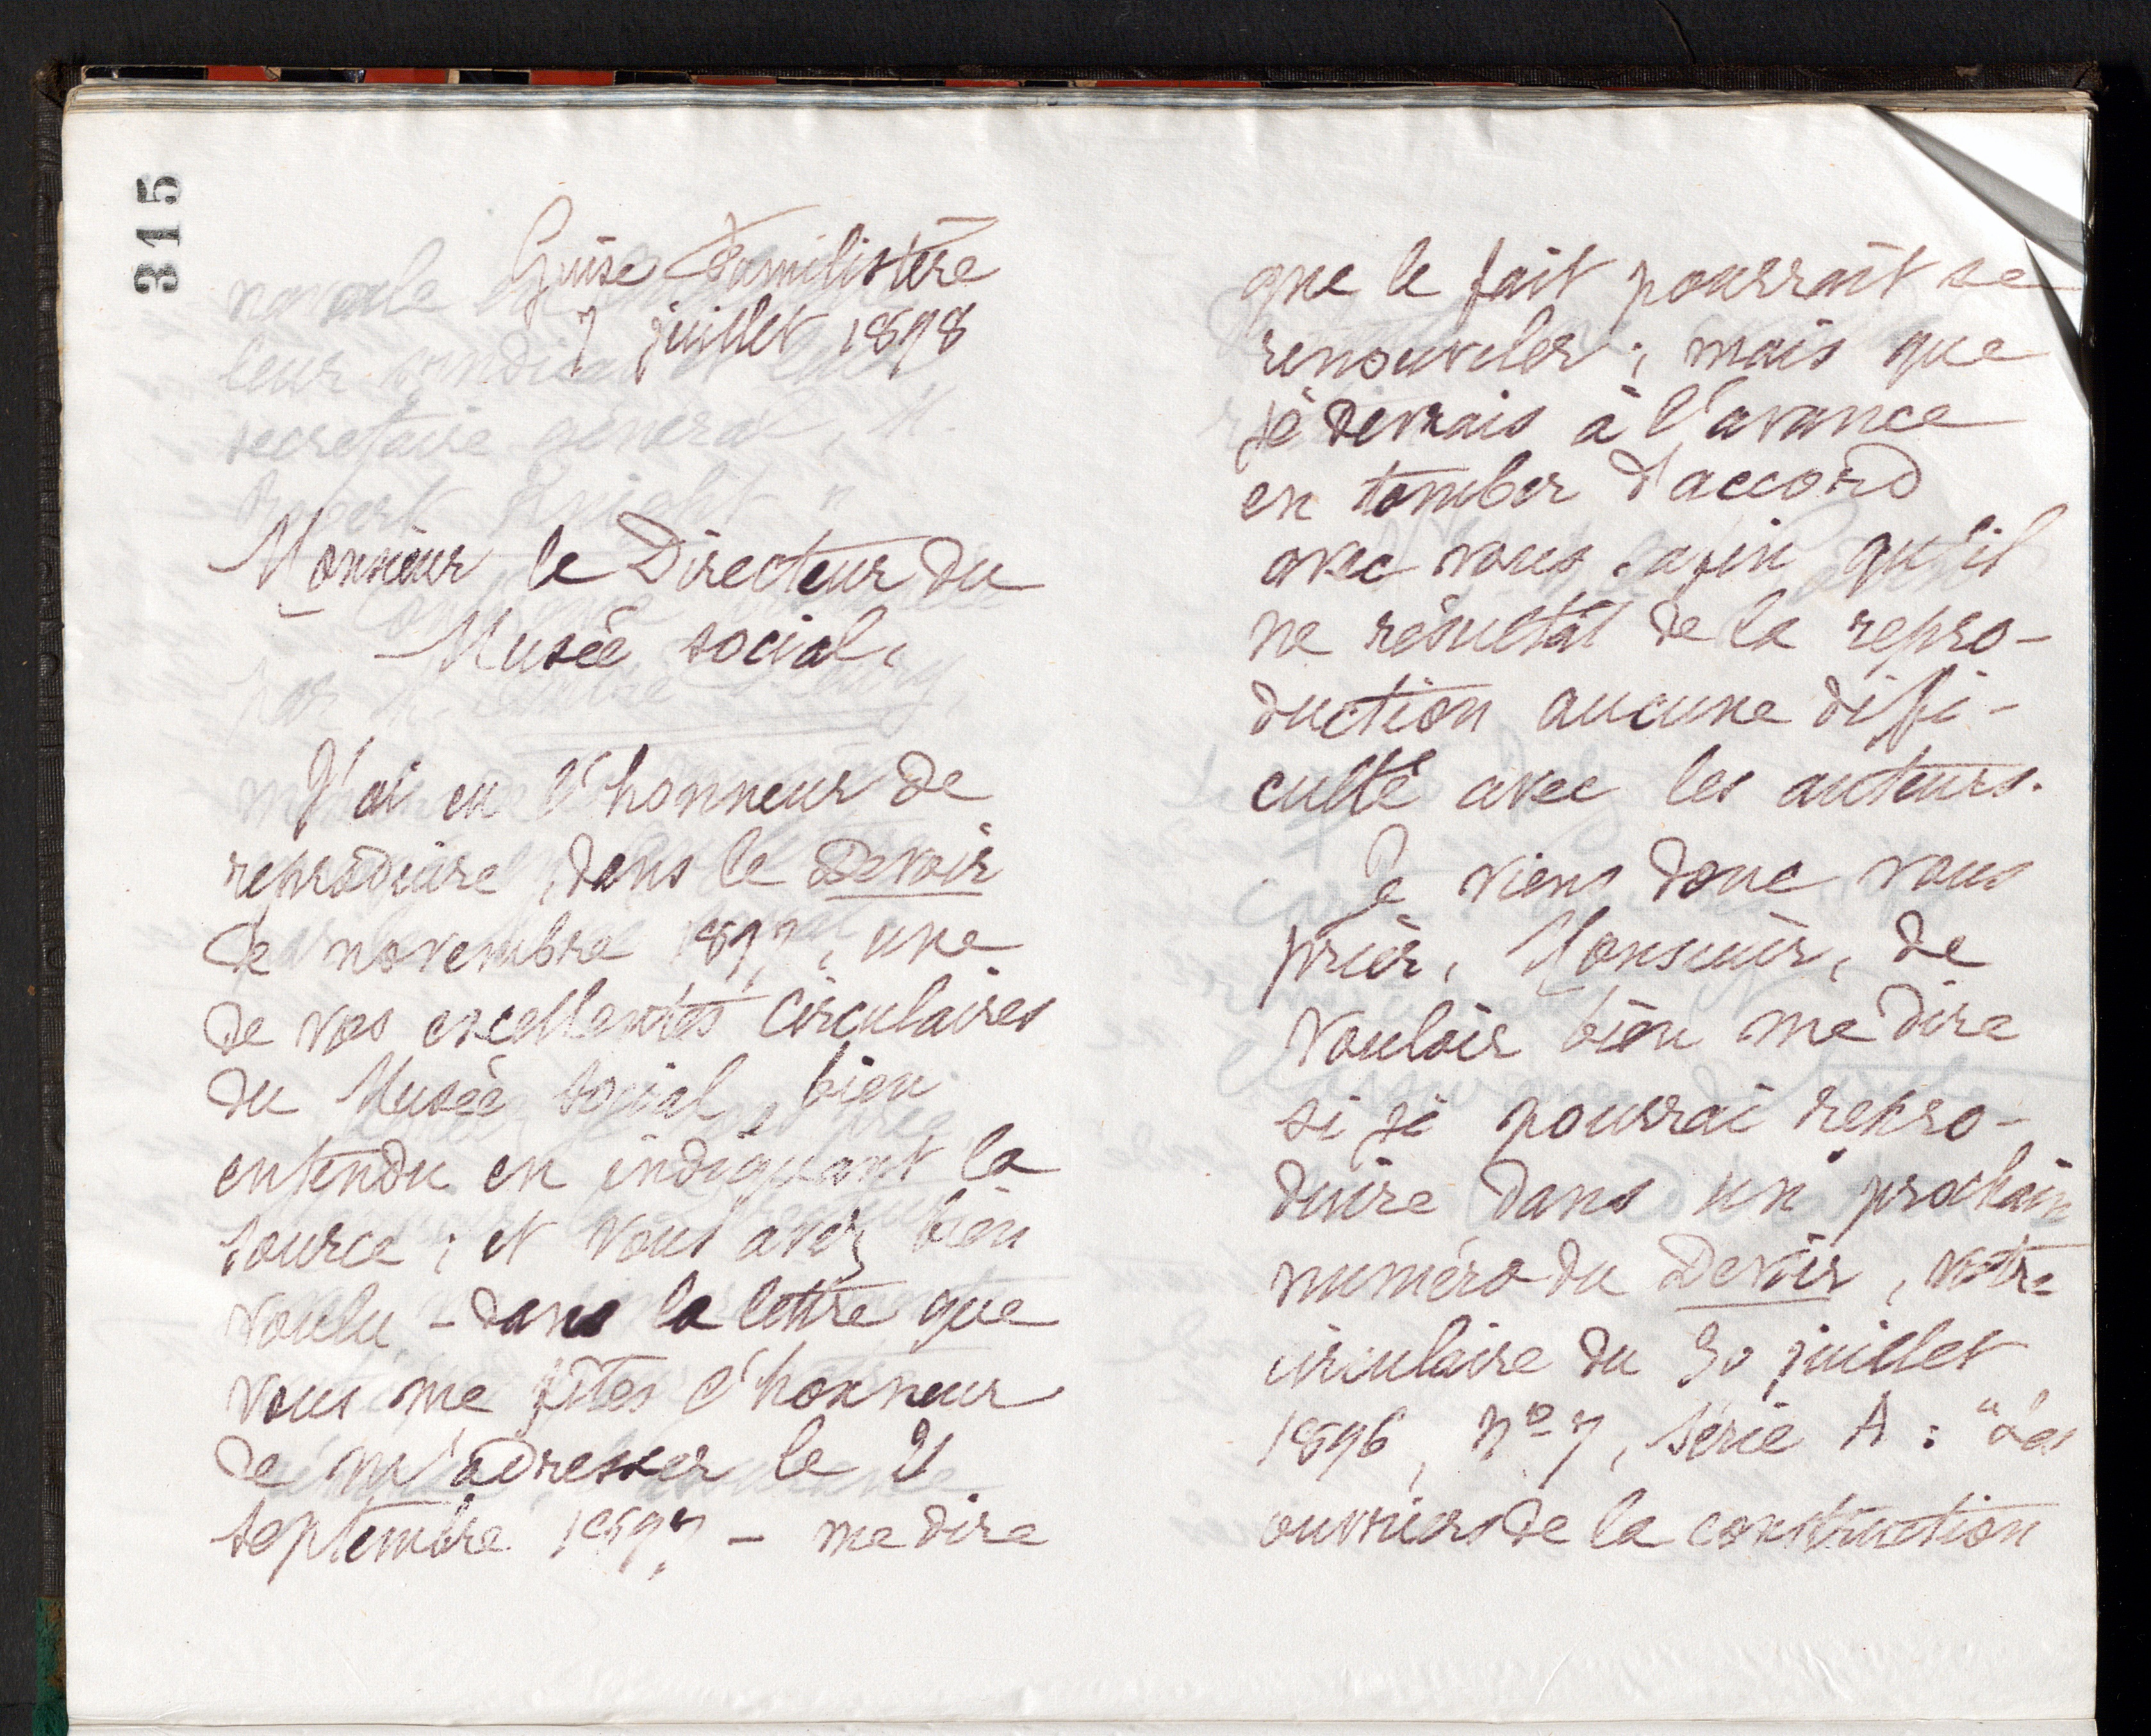 315
Guise Familistère
7 juillet 1898
Monsieur le Directeur du
Musée social,
J'ai eu l'honneur de
reproduire, dans le Devoir
de novembre 1897, une
de vos excellentes circulaires
du Musée social, bien
entendu en indiquant la
source ; et vous avez bien
voulu - dans la lettre que
vous me fîtes l'honneur
de m'adresser le 21
septembre 1897 - me dire
que le fait pourrait se
renouveler ; mais que
je devrais à l'avance
en tomber d'accord
avec vous, afin qu'il
ne résultât de la repro-
duction aucune diffi-
culté avec les auteurs.
Je viens donc vous
prier, Monsieur, de
vouloir bien me dire
si je pourrai repro-
duire dans un prochain
numéro du Devoir, votre
circulaire du 30 juillet
1896, No 7, série A : "Les
ouvriers de la construction